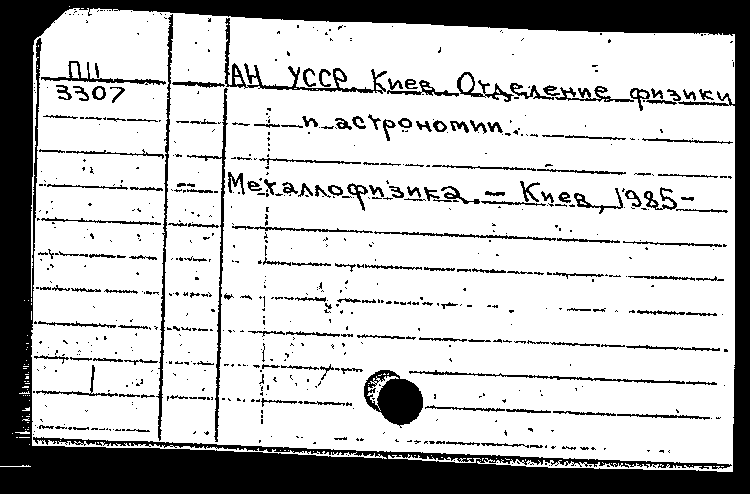 П11
3307
АН УССР. Киев. Отделение физики
и астрономии.
Металлофизика. — Киев, 1985-